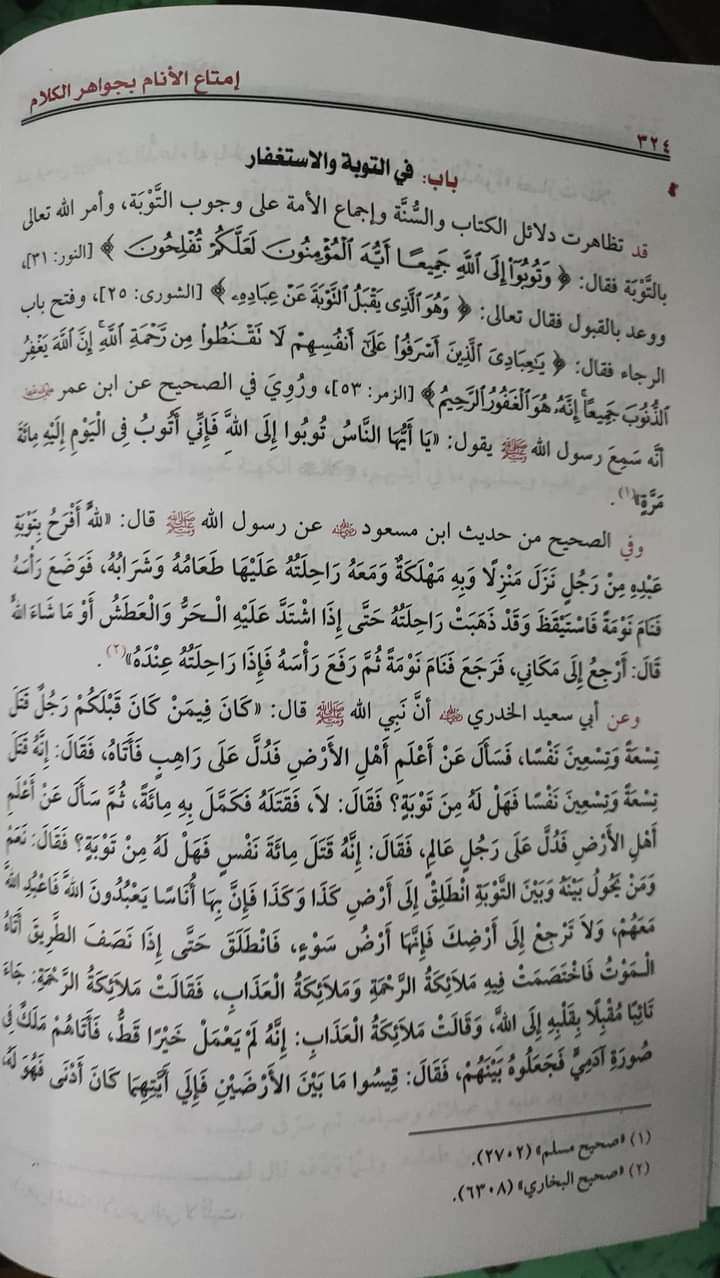 إمتاع الأنام بجواهر الكلام
٣٢٤
باب: في التوبة والاستغفار
قد تظاهرت دلائل الكتاب والسُّنَّة وإجماع الأمة على وجوب التَّوْبَة، وأمر الله تعالى
بالتَّوْبَة فقال: ﴿ وَتُوبُوٓاْ إِلَى ٱللَّهِ جَمِيعًا أَيُّهَ ٱلْمُؤْمِنُونَ لَعَلَّكُمْ تُفْلِحُونَ ﴾ [النور: ٣١]،
ووعد بالقبول فقال تعالى: ﴿ وَهُوَ ٱلَّذِى يَقْبَلُ ٱلتَّوْبَةَ عَنْ عِبَادِهِۦ ﴾ [الشورى: ٢٥]، وفتح باب
الرجاء فقال: ﴿ يَٰعِبَادِىَ ٱلَّذِينَ أَسْرَفُواْ عَلَىٰٓ أَنفُسِهِمْ لَا تَقْنَطُواْ مِن رَّحْمَةِ ٱللَّهِ إِنَّ ٱللَّهَ يَغْفِرُ
ٱلذُّنُوبَ جَمِيعًا إِنَّهُۥ هُوَ ٱلْغَفُورُ ٱلرَّحِيمُ ﴾ [الزمر: ٥٣]، ورُوِيَ في الصحيح عن ابن عمر
أنَّه سَمِعَ رسول الله ﷺ يقول: «يَا أَيُّهَا النَّاسُ تُوبُوا إِلَى اللهِ فَإِنِّي أَتُوبُ فِى الْيَوْمِ إِلَيْهِ مِائَةَ
مَرَّةٍ»(١).
وفي الصحيح من حديث ابن مسعود رضي الله عنه عن رسول الله ﷺ قال: «للهُ أَفْرَحُ بِتَوْبَةِ
عَبْدِهِ مِنْ رَجُلٍ نَزَلَ مَنْزِلًا وَبِهِ مَهْلَكَةٌ وَمَعَهُ رَاحِلَتُهُ عَلَيْهَا طَعَامُهُ وَشَرَابُهُ، فَوَضَعَ رَأْسَهُ
فَنَامَ نَوْمَةً فَاسْتَيْقَظَ وَقَدْ ذَهَبَتْ رَاحِلَتُهُ حَتَّى إِذَا اشْتَدَّ عَلَيْهِ الْحَرُّ وَالْعَطَشُ أَوْ مَا شَاءَ اللهُ
قَالَ: أَرْجِعُ إِلَى مَكَانِي، فَرَجَعَ فَنَامَ نَوْمَةً ثُمَّ رَفَعَ رَأْسَهُ فَإِذَا رَاحِلَتُهُ عِنْدَهُ»(٢).
وعن أبي سعيد الخدري رضي الله عنه أنَّ نَبِي الله ﷺ قال: «كَانَ فِيمَنْ كَانَ قَبْلَكُمْ رَجُلٌ قَتَلَ
تِسْعَةً وَتِسْعِينَ نَفْسًا، فَسَأَلَ عَنْ أَعْلَمِ أَهْلِ الأَرْضِ فَدُلَّ عَلَى رَاهِبٍ فَأَتَاهُ، فَقَالَ: إِنَّهُ قَتَلَ
تِسْعَةً وَتِسْعِينَ نَفْسًا فَهَلْ لَهُ مِنَ تَوْبَةٍ؟ فَقَالَ: لاَ، فَقَتَلَهُ فَكَمَّلَ بِهِ مِائَةً، ثُمَّ سَأَلَ عَنْ أَعْلَمِ
أَهْلِ الأَرْضِ فَدُلَّ عَلَى رَجُلٍ عَالِمٍ، فَقَالَ: إِنَّهُ قَتَلَ مِائَةَ نَفْسٍ فَهَلْ لَهُ مِنْ تَوْبَةٍ؟ فَقَالَ: نَعَمْ
وَمَنْ يَحُولُ بَيْنَهُ وَبَيْنَ التَّوْبَةِ انْطَلِقْ إِلَى أَرْضِ كَذَا وَكَذَا فَإِنَّ بِهَا أُنَاسًا يَعْبُدُونَ اللهَ فَاعْبُدِ اللهَ
مَعَهُمْ، وَلاَ تَرْجِعْ إِلَى أَرْضِكَ فَإِنَّهَا أَرْضُ سَوْءٍ، فَانْطَلَقَ حَتَّى إِذَا نَصَفَ الطَّرِيقَ أَتَاهُ
الْمَوْتُ فَاخْتَصَمَتْ فِيهِ مَلاَئِكَةُ الرَّحْمَةِ وَمَلاَئِكَةُ الْعَذَابِ، فَقَالَتْ مَلاَئِكَةُ الرَّحْمَةِ: جَاءَ
تَائِبًا مُقْبِلًا بِقَلْبِهِ إِلَى اللهِ، وَقَالَتْ مَلاَئِكَةُ الْعَذَابِ: إِنَّهُ لَمْ يَعْمَلْ خَيْرًا قَطُّ، فَأَتَاهُمْ مَلَكٌ فِي
صُورَةِ آدَمِيٍّ فَجَعَلُوهُ بَيْنَهُمْ، فَقَالَ: قِيسُوا مَا بَيْنَ الأَرْضَيْنِ فَإِلَى أَيَّتِهِمَا كَانَ أَدْنَى فَهُوَ لَهُ،
(١) «صحيح مسلم» (٢٧٠٢).
(٢) «صحيح البخاري» (٦٣٠٨).